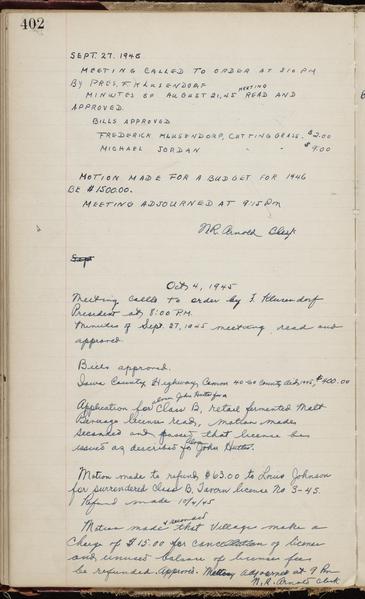 402
SEPT. 27. 1945
MEETING CALLED TO ORDER AT 810 PM
BY PRES. F. KLUSENDORF
MEETING
MINUTES OF AUGUST 21, 45 READ AND
APPROVED.
BILLS APPROVED
FREDERICK KLUSENDORF, CUTTING GRASS. $2.00
MICHAEL JORDAN " " $9.00
MOTION MADE FOR A BUDGET FOR 1946
BE $1500.00.
MEETING ADJOURNED AT 9:15 Pm
N.R. Arnold Clerk
Sept
Oct 4, 1945
Meeting called to order by F. Klusendorf
President at 8:00 P.M.
Minutes of Sept. 27, 1945 meeting read and
approved
Bills approved.
Iowa County Highway Comm 40-60 County Aid, $400.00
John Hutter for a
Application for Class B, retail fermented Malt
Beverage license read, motion made
seconded and passed that license be
issued as described for John Hutter.
Motion made to refund $63.00 to Louis Johnson
for surrendered Class B, Tavern license No 3-45.
Refund made 10/4/45
& seconded
Motion made that Village make a
Charge of $15.00 for cancellation of license
and unused balance of license fee
be refunded. Approved. Meeting adjourned at 9 Pm
N.R. Arnold Clerk